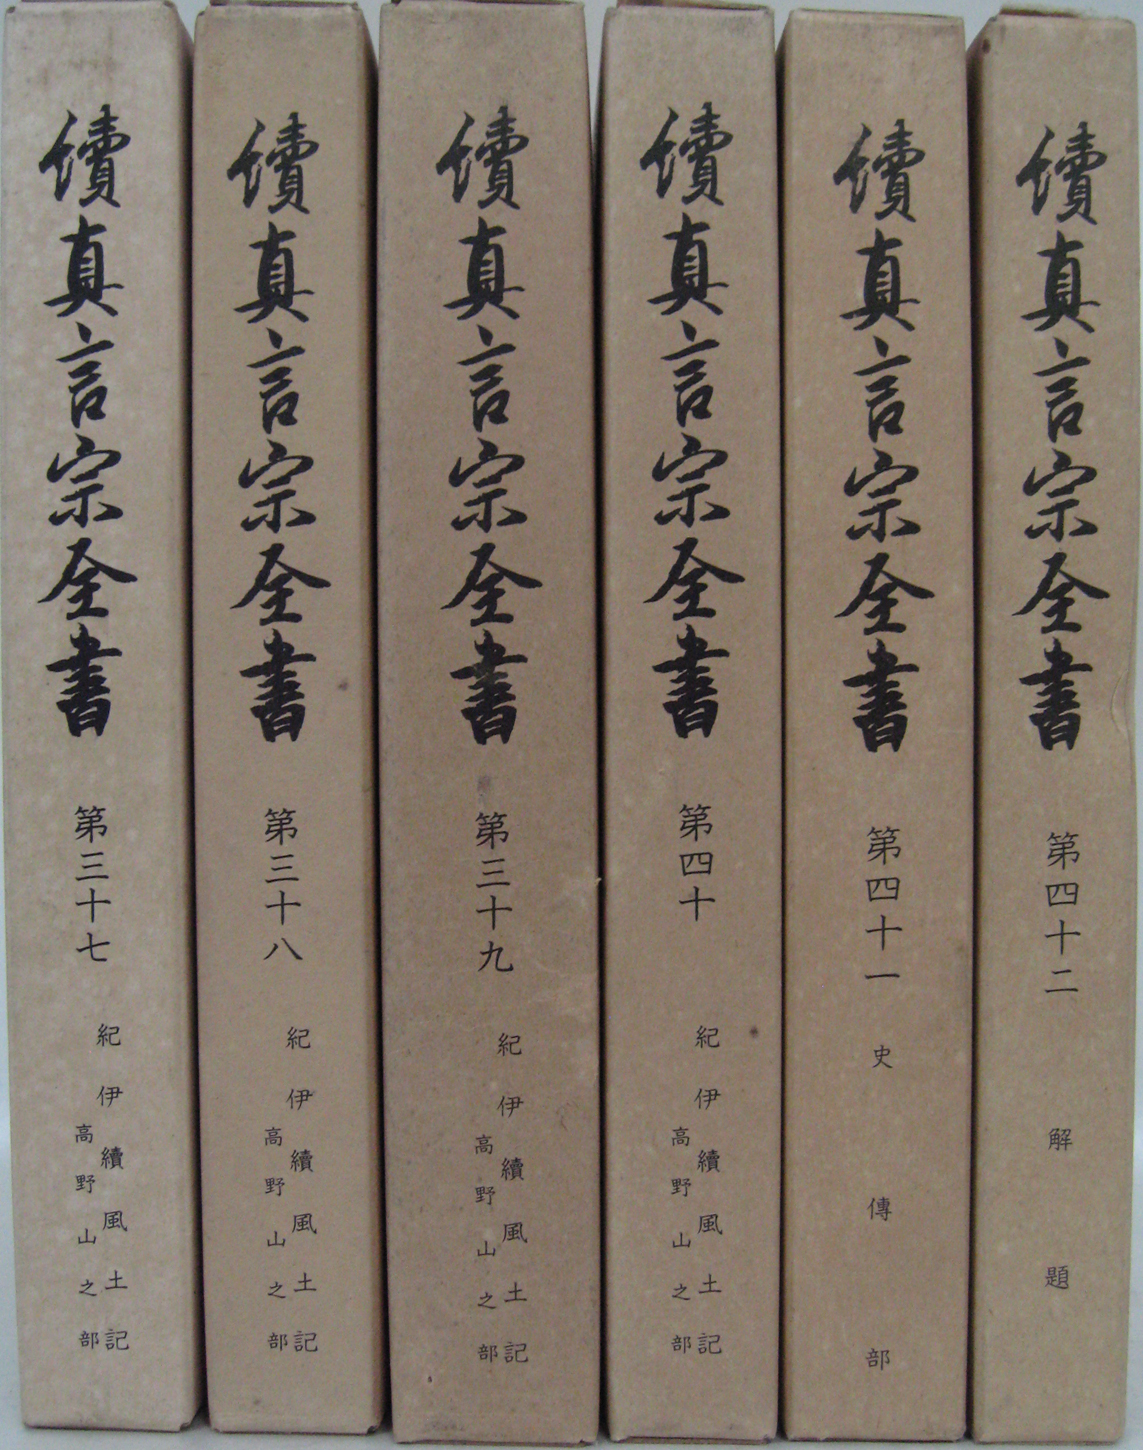 續真言宗全書
第三十七
紀伊續風土記
高野山之部
續真言宗全書
第三十八
紀伊續風土記
高野山之部
續真言宗全書
第三十九
紀伊續風土記
高野山之部
續真言宗全書
第四十
紀伊續風土記
高野山之部
續真言宗全書
第四十一
史傳部
續真言宗全書
第四十二
解題